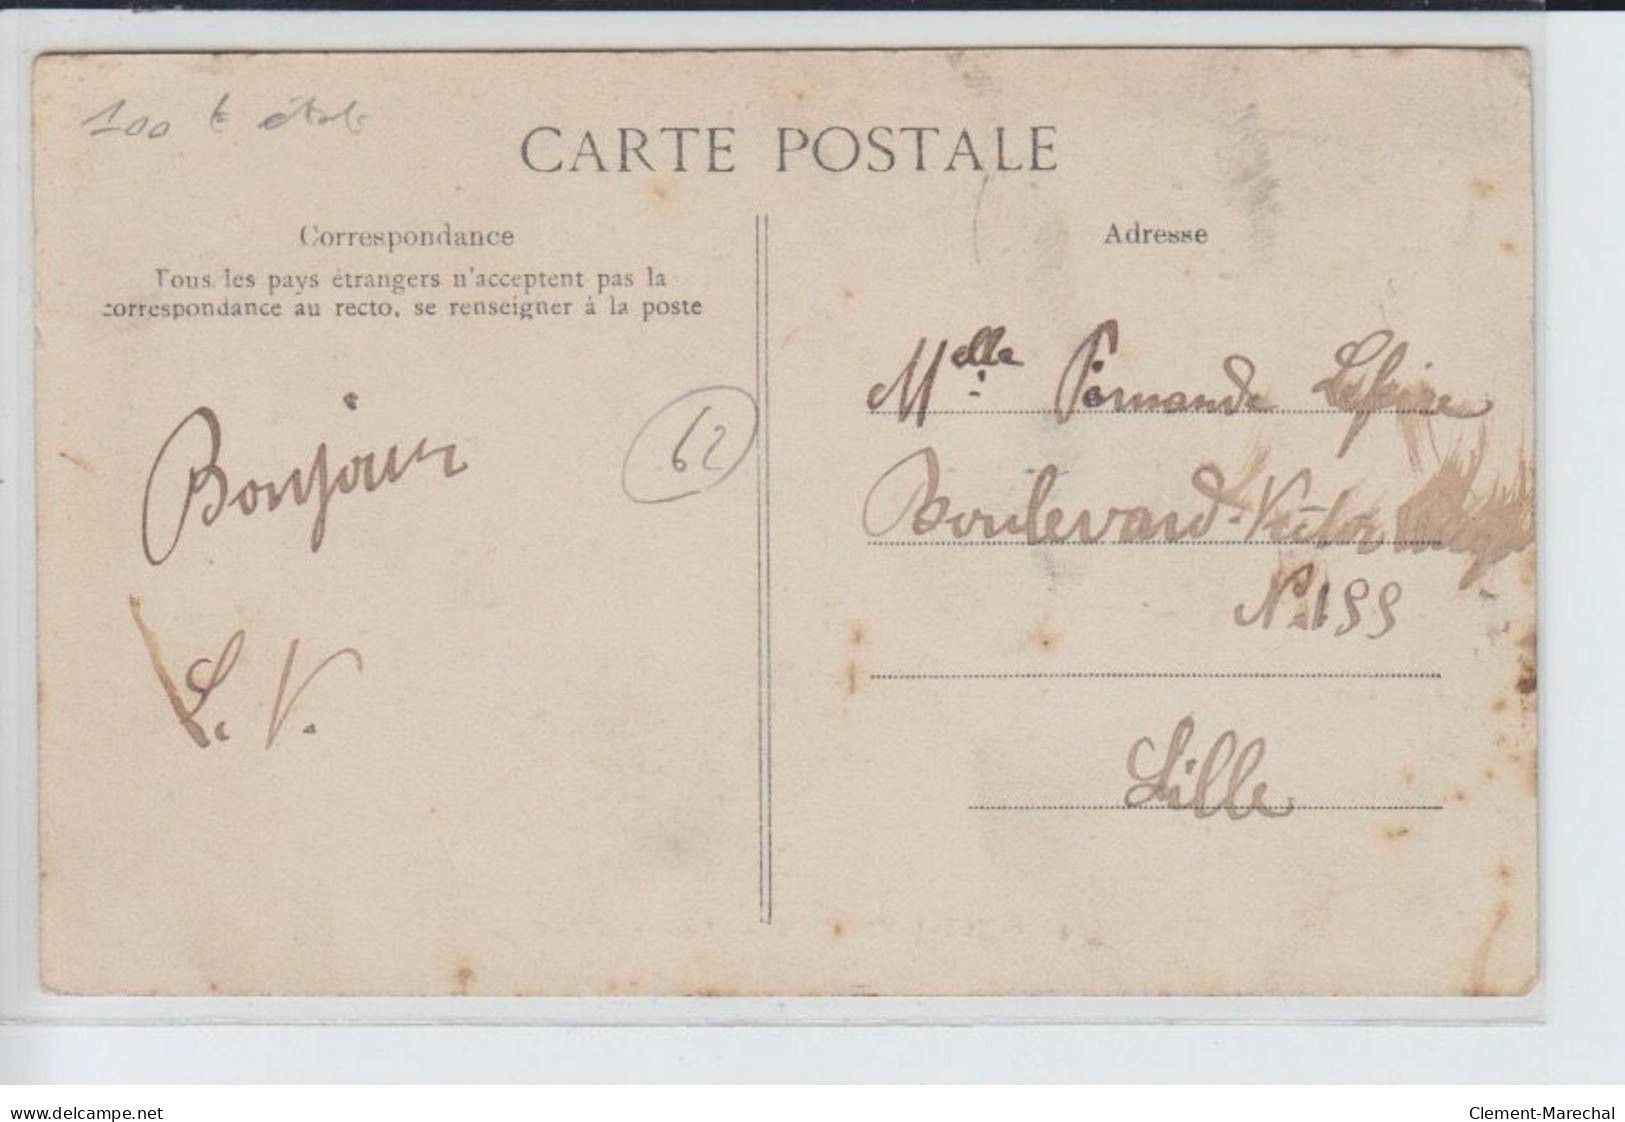 100 t
CARTE POSTALE
Correspondance
Tous les pays étrangers n'acceptent pas la
correspondance au recto, se renseigner à la poste
62
Bonjour
L. V.
Adresse
Melle Fernande
Boulevard Victor Hugo
No 155
Lille
www.delcampe.net
Clement-Marechal